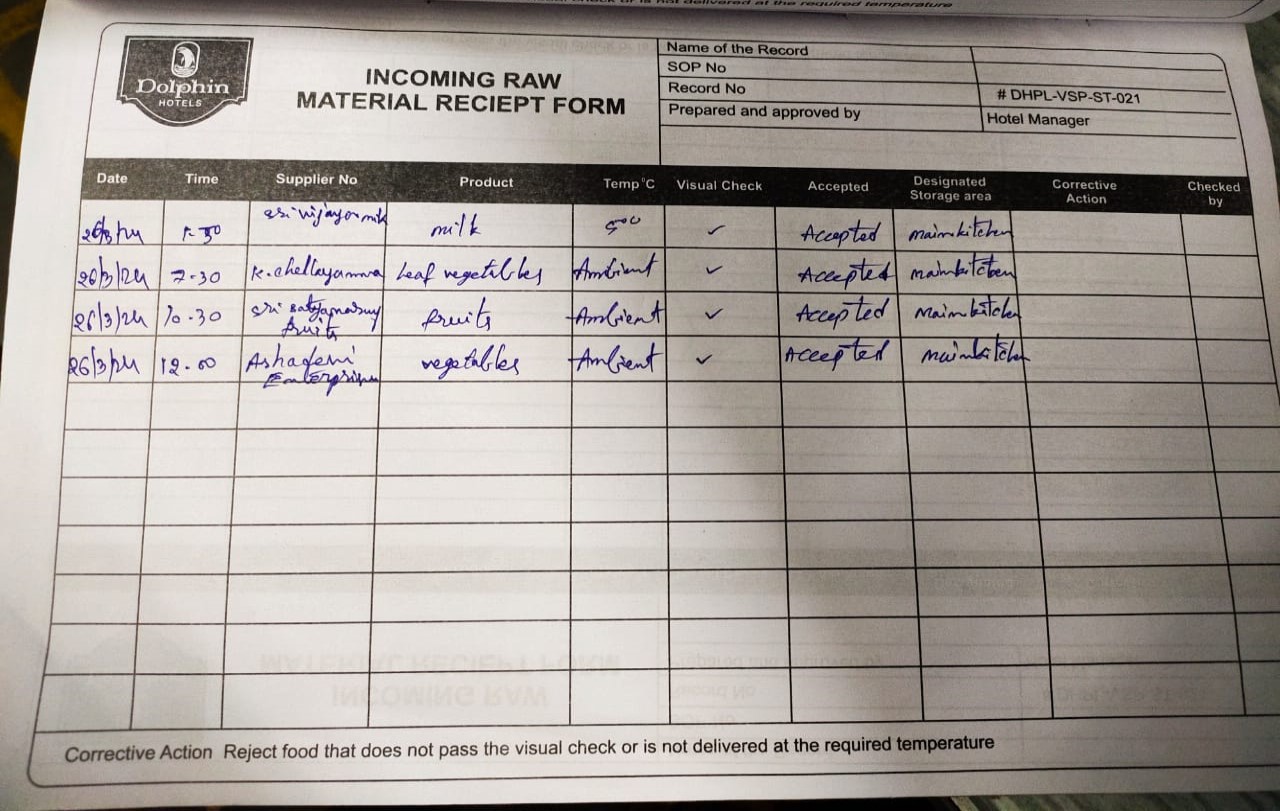 is not delivered at the required temperature
Dolphin
HOTELS
INCOMING RAW
MATERIAL RECIEPT FORM
Name of the Record
SOP No
Record No # DHPL-VSP-ST-021
Prepared and approved by Hotel Manager
Date Time Supplier No Product Temp°C Visual Check Accepted Designated Storage area Corrective Action Checked by
26/3/24 milk ✓ Accepted mainkitchen
26/3/24 7-30 K.chellayamma Leaf vegetables Ambient ✓ Accepted mainkitchen
26/3/24 10-30 sri fruits fruits Ambient ✓ Accepted Mainkitchen
26/3/24 12.00 Enterprises vegetables Ambient ✓ Accepted mainkitchen
Corrective Action Reject food that does not pass the visual check or is not delivered at the required temperature